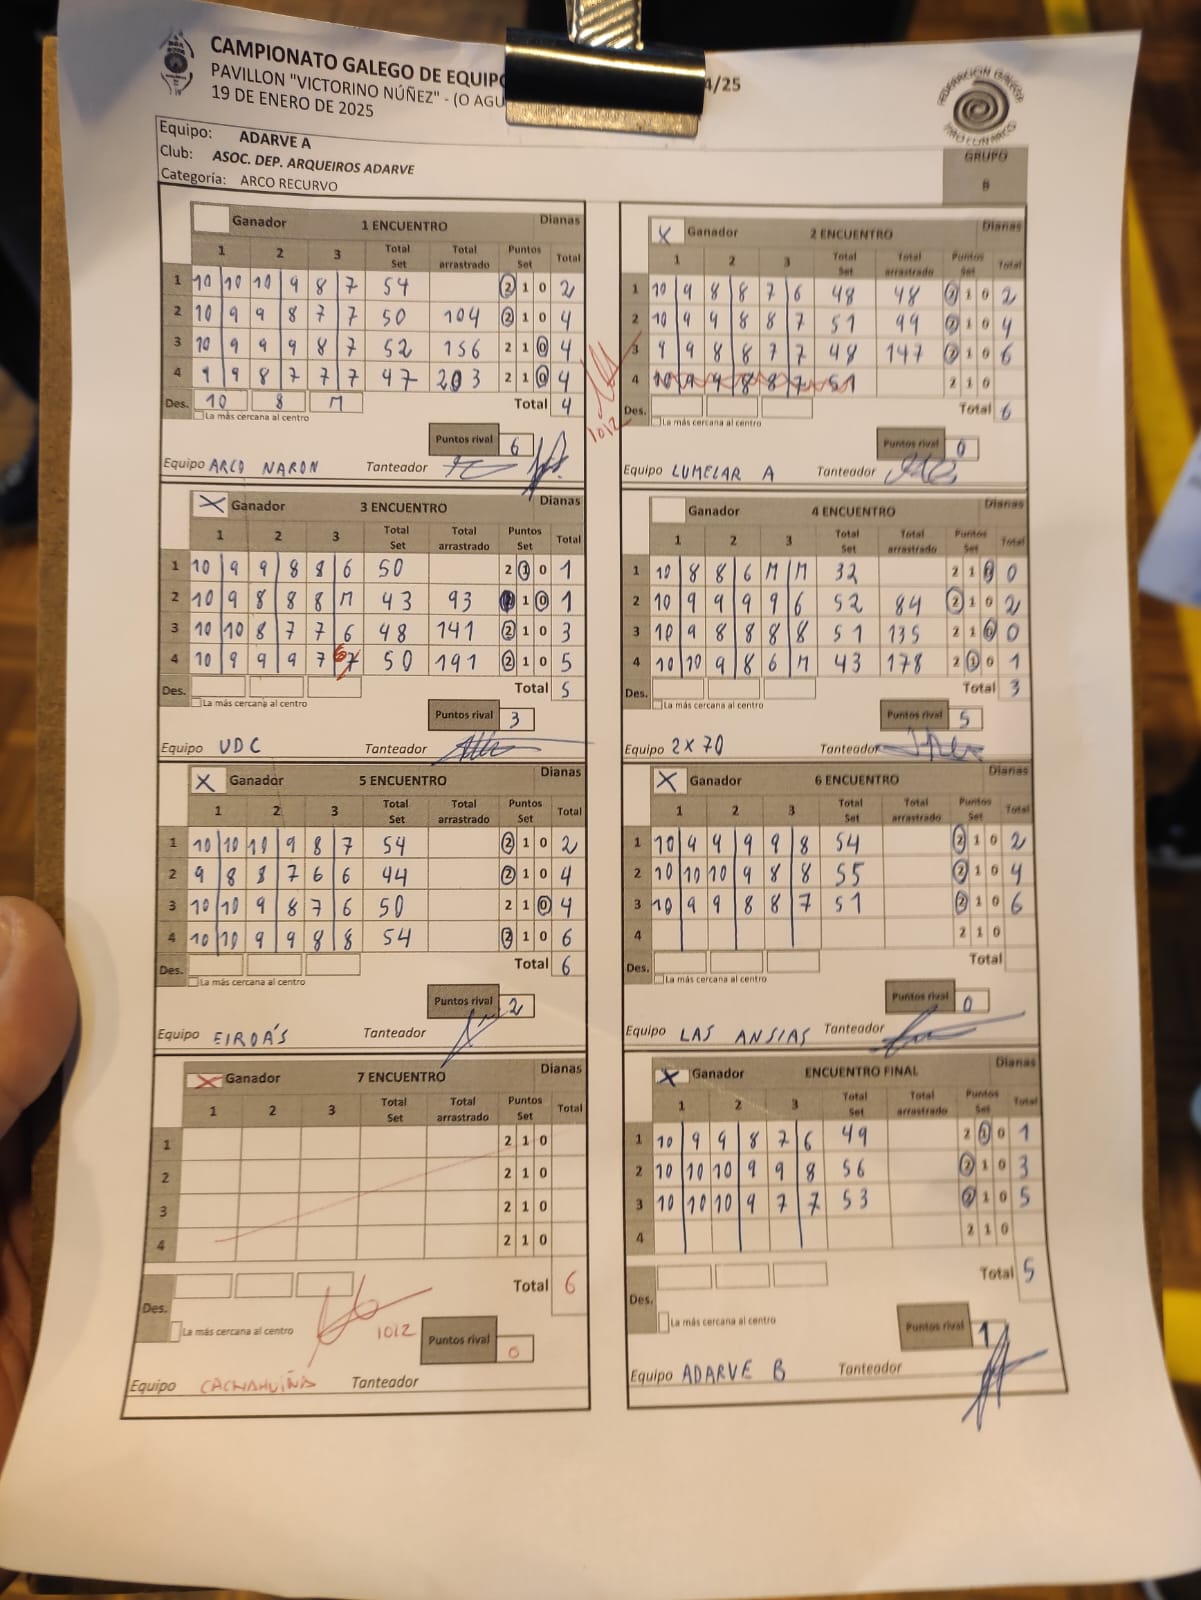 CAMPIONATO GALEGO DE EQUIPO 4/25
PAVILLON "VICTORINO NÚÑEZ" - (O AGU
19 DE ENERO DE 2025
FEDERACIÓN GALEGA TIRO CON ARCO
Equipo: ADARVE A
Club: ASOC. DEP. ARQUEIROS ADARVE
Categoría: ARCO RECURVO
GRUPO
B
Ganador 1 ENCUENTRO Dianas
1 2 3 Total Set Total arrastrado Puntos Set Total
1 10 10 10 9 8 7 54 2 1 0 2
2 10 9 9 8 7 7 50 104 2 1 0 4
3 10 9 9 9 8 7 52 156 2 1 0 4
4 9 9 8 7 7 7 47 203 2 1 0 4
Des. 10 8 M Total 4
La más cercana al centro
Puntos rival 6
Equipo ARCO NARON Tanteador
X Ganador 2 ENCUENTRO Dianas
1 2 3 Total Set Total arrastrado Puntos Set Total
1 10 9 8 8 7 6 48 48 2 1 0 2
2 10 9 9 8 8 7 51 99 2 1 0 4
3 9 9 8 8 7 7 48 147 2 1 0 6
4 10 9 9 8 8 7 51 2 1 0
1012
Des. Total 6
La más cercana al centro
Puntos rival 0
Equipo LUMELAR A Tanteador
X Ganador 3 ENCUENTRO Dianas
1 2 3 Total Set Total arrastrado Puntos Set Total
1 10 9 9 8 8 6 50 2 1 0 1
2 10 9 8 8 8 M 43 93 2 1 0 1
3 10 10 8 7 7 6 48 141 2 1 0 3
4 10 9 9 9 7 6 7 50 191 2 1 0 5
Des. Total 5
La más cercana al centro
Puntos rival 3
Equipo UDC Tanteador
Ganador 4 ENCUENTRO Dianas
1 2 3 Total Set Total arrastrado Puntos Set Total
1 10 8 8 6 M M 32 2 1 0 0
2 10 9 9 9 9 6 52 84 2 1 0 2
3 10 9 8 8 8 8 51 135 2 1 0 0
4 10 10 9 8 6 M 43 178 2 1 0 1
Des. Total 3
La más cercana al centro
Puntos rival 5
Equipo 2X70 Tanteador
X Ganador 5 ENCUENTRO Dianas
1 2 3 Total Set Total arrastrado Puntos Set Total
1 10 10 10 9 8 7 54 2 1 0 2
2 9 8 8 7 6 6 44 2 1 0 4
3 10 10 9 8 7 6 50 2 1 0 4
4 10 10 9 9 8 8 54 2 1 0 6
Des. Total 6
La más cercana al centro
Puntos rival 2
Equipo EIROÁS Tanteador
X Ganador 6 ENCUENTRO Dianas
1 2 3 Total Set Total arrastrado Puntos Set Total
1 10 9 9 9 9 8 54 2 1 0 2
2 10 10 10 9 8 8 55 2 1 0 4
3 10 9 9 8 8 7 51 2 1 0 6
4 2 1 0
Des. Total
La más cercana al centro
Puntos rival 0
Equipo LAS ANSIAS Tanteador
X Ganador 7 ENCUENTRO Dianas
1 2 3 Total Set Total arrastrado Puntos Set Total
1 2 1 0
2 2 1 0
3 2 1 0
4 2 1 0
Des. Total 6
La más cercana al centro 1012
Puntos rival 0
Equipo CACHAMUIÑA Tanteador
X Ganador ENCUENTRO FINAL Dianas
1 2 3 Total Set Total arrastrado Puntos Set Total
1 10 9 9 8 7 6 49 2 1 0 1
2 10 10 10 9 9 8 56 2 1 0 3
3 10 10 10 9 7 7 53 2 1 0 5
4 2 1 0
Des. Total 5
La más cercana al centro
Puntos rival 1
Equipo ADARVE B Tanteador